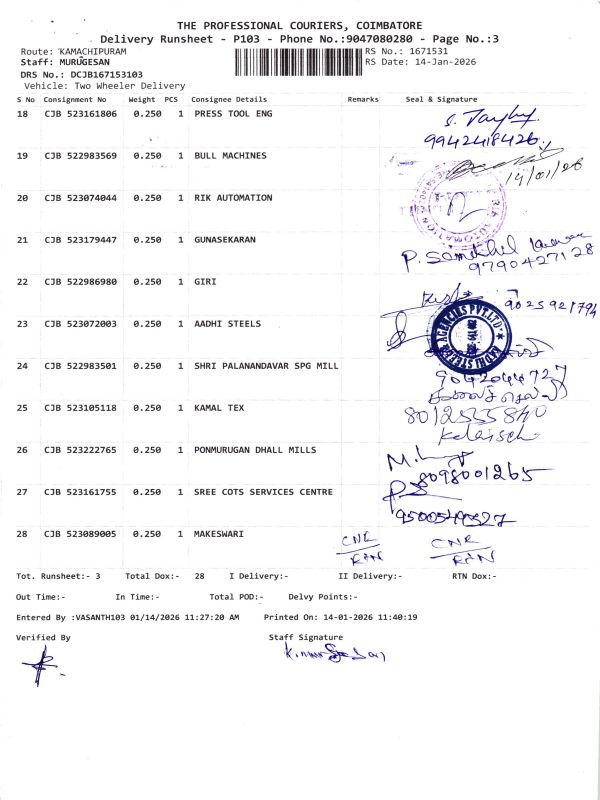 THE PROFESSIONAL COURIERS, COIMBATORE
Delivery Runsheet - P103 - Phone No.:9047080280 - Page No.:3
Route: KAMACHIPURAM RS No.: 1671531
Staff: MURUGESAN RS Date: 14-Jan-2026
DRS No.: DCJB167153103
Vehicle: Two Wheeler Delivery
S No Consignment No Weight PCS Consignee Details Remarks Seal & Signature
18 CJB 523161806 0.250 1 PRESS TOOL ENG
9942418426
19 CJB 522983569 0.250 1 BULL MACHINES
14/01/26
20 CJB 523074044 0.250 1 RIK AUTOMATION
RIK AUTOMATION
21 CJB 523179447 0.250 1 GUNASEKARAN
9790427128
22 CJB 522986980 0.250 1 GIRI
9025921794
23 CJB 523072003 0.250 1 AADHI STEELS
AADHI STEELS AGENCIES PVT LTD
24 CJB 522983501 0.250 1 SHRI PALANANDAVAR SPG MILL
9042044727
25 CJB 523105118 0.250 1 KAMAL TEX
26 CJB 523222765 0.250 1 PONMURUGAN DHALL MILLS
8098001265
27 CJB 523161755 0.250 1 SREE COTS SERVICES CENTRE
28 CJB 523089005 0.250 1 MAKESWARI
Tot. Runsheet:- 3 Total Dox:- 28 I Delivery:- II Delivery:- RTN Dox:-
Out Time:- In Time:- Total POD:- Delvy Points:-
Entered By :VASANTH103 01/14/2026 11:27:20 AM Printed On: 14-01-2026 11:40:19
Verified By Staff Signature